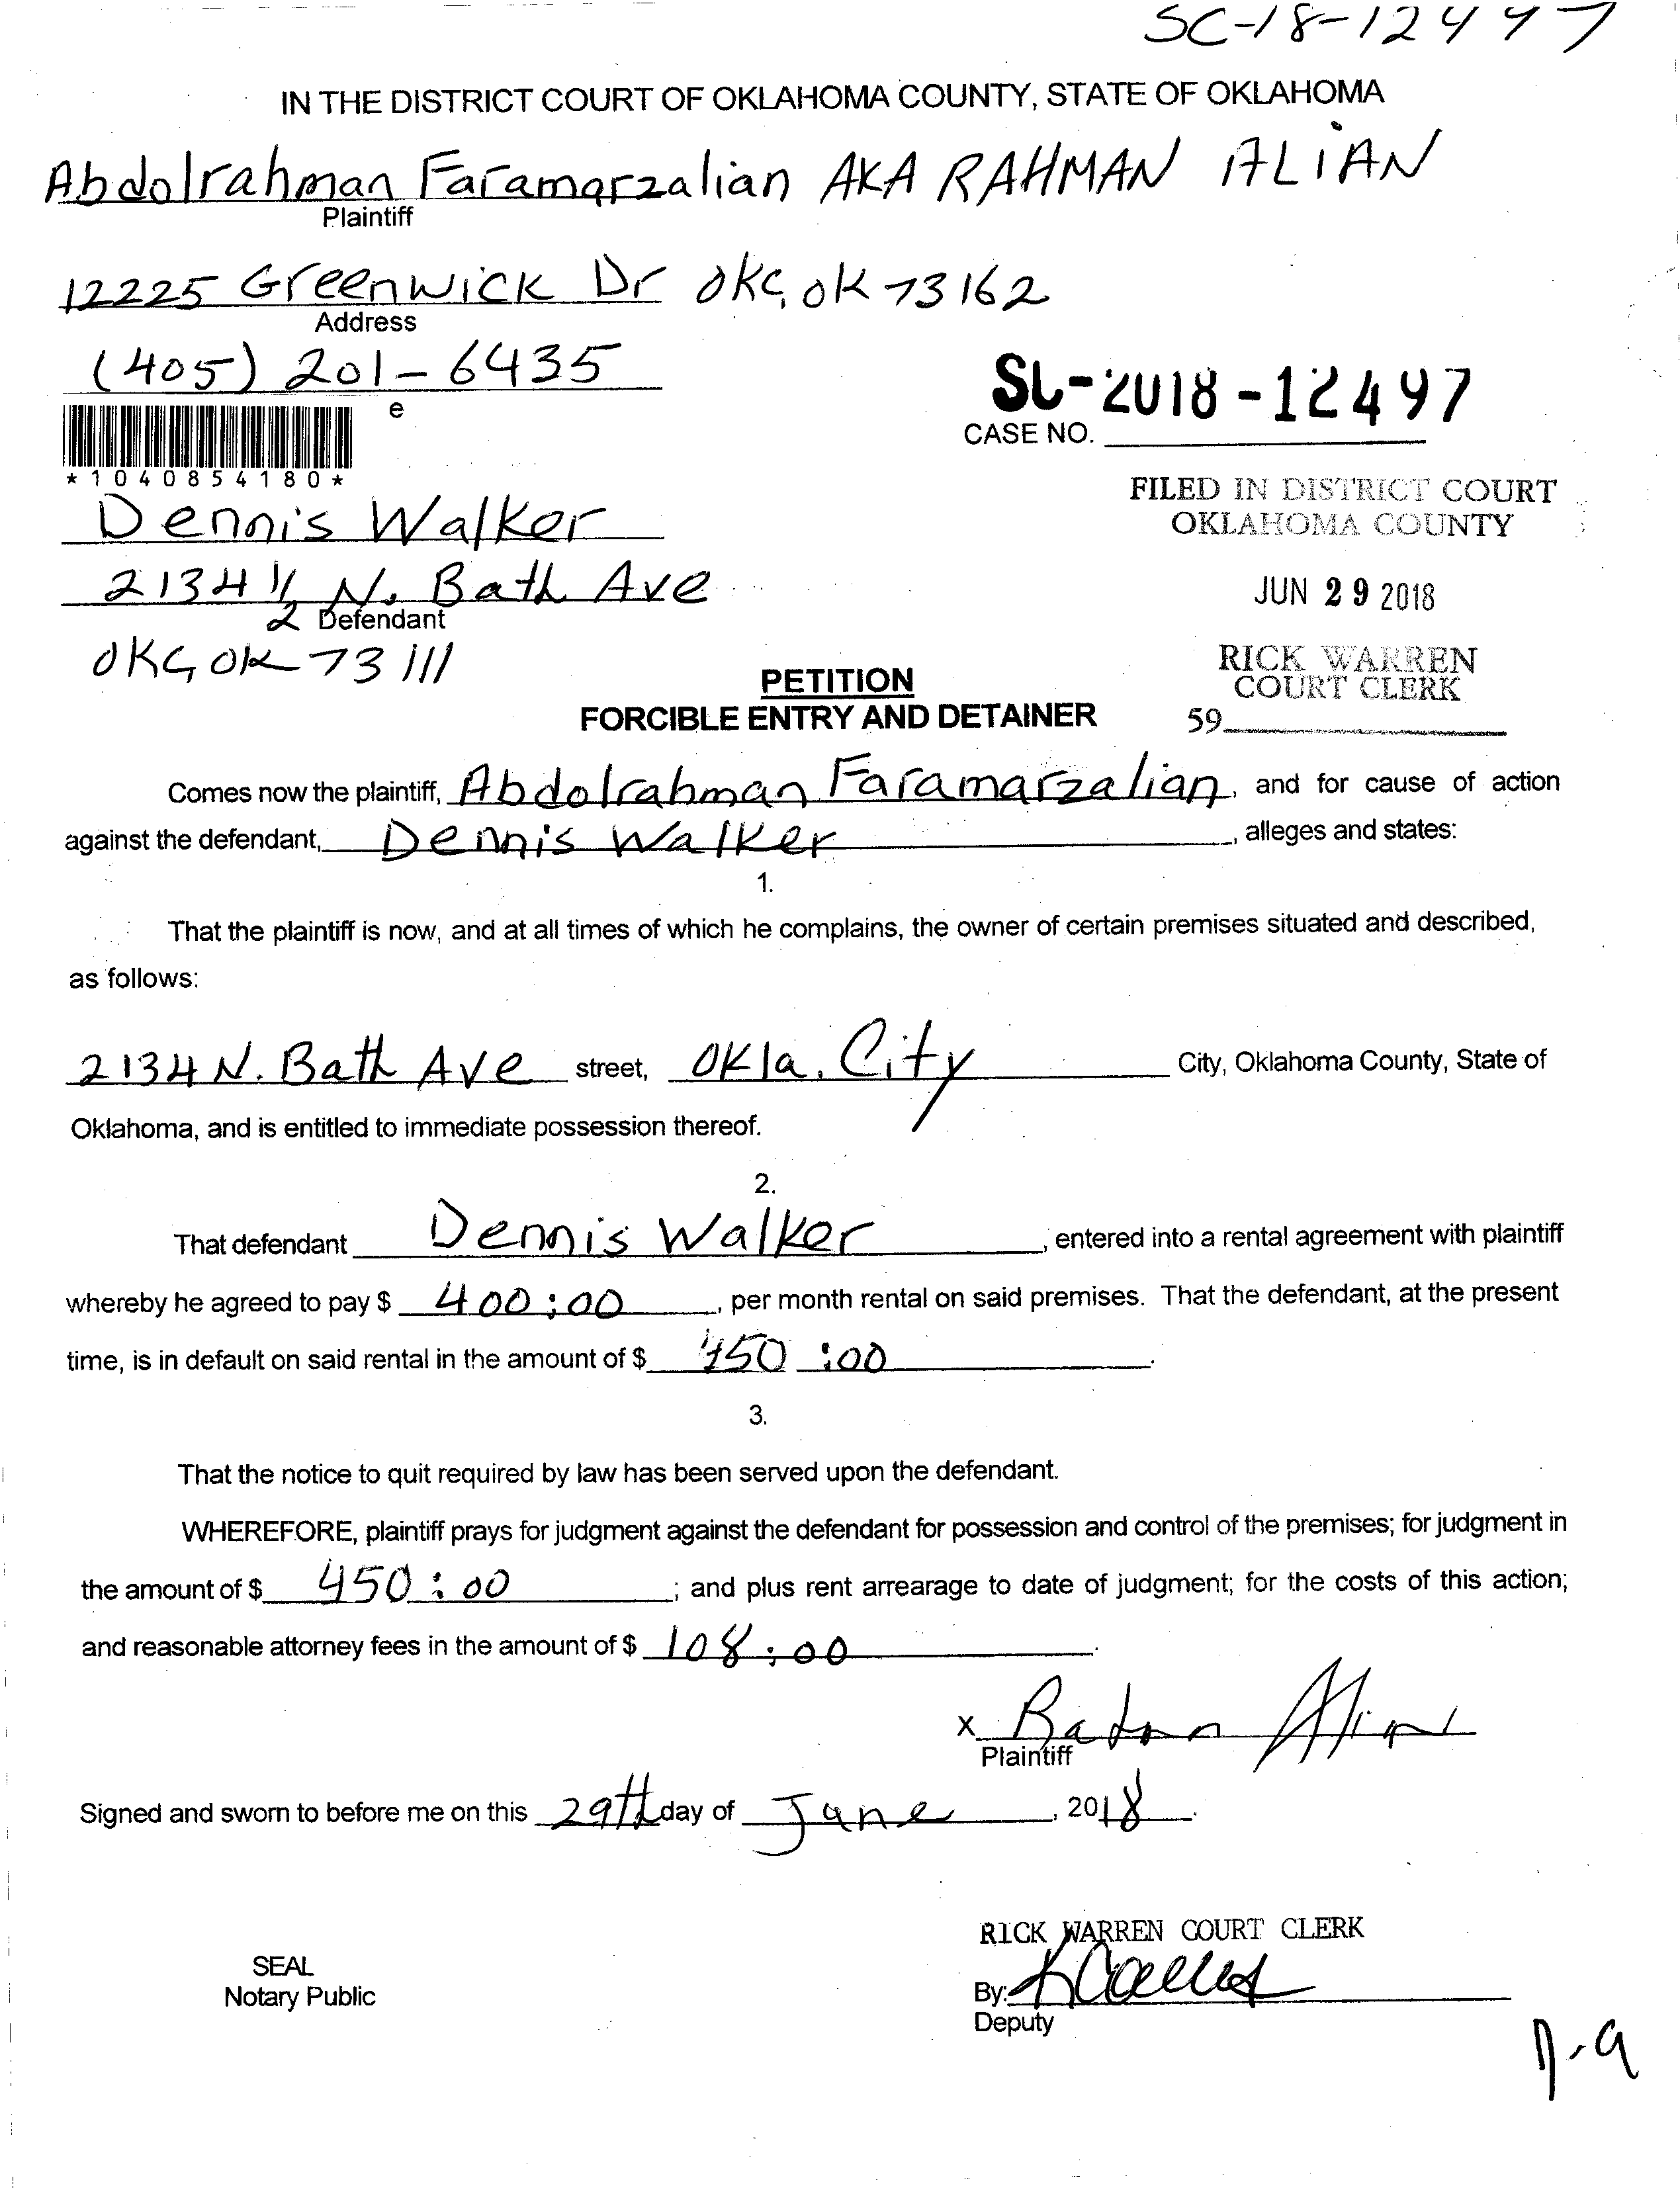 SC-18-12497
IN THE DISTRICT COURT OF OKLAHOMA COUNTY, STATE OF OKLAHOMA
Abdolrahman Faramarzalian AKA RAHMAN ALIAN
Plaintiff
12225 Greenwick Dr OKC, OK 73162
Address
(405) 201-6435
e
*1040854180*
SC-2018-12497
CASE NO.
FILED IN DISTRICT COURT
OKLAHOMA COUNTY
JUN 29 2018
RICK WARREN
COURT CLERK
59
Dennis Walker
2134 1/2 N. Bath Ave
Defendant
OKC, OK 73111
PETITION
FORCIBLE ENTRY AND DETAINER
Comes now the plaintiff, Abdolrahman Faramarzalian, and for cause of action
against the defendant, Dennis Walker, alleges and states:
1.
That the plaintiff is now, and at all times of which he complains, the owner of certain premises situated and described,
as follows:
2134 N. Bath Ave street, Okla. City City, Oklahoma County, State of
Oklahoma, and is entitled to immediate possession thereof.
2.
That defendant Dennis Walker, entered into a rental agreement with plaintiff
whereby he agreed to pay $ 400:00, per month rental on said premises. That the defendant, at the present
time, is in default on said rental in the amount of $ 450:00.
3.
That the notice to quit required by law has been served upon the defendant.
WHEREFORE, plaintiff prays for judgment against the defendant for possession and control of the premises; for judgment in
the amount of $ 450:00; and plus rent arrearage to date of judgment; for the costs of this action;
and reasonable attorney fees in the amount of $ 108:00.
X
Plaintiff
Signed and sworn to before me on this 29th day of June, 2018.
RICK WARREN COURT CLERK
SEAL
Notary Public
By:
Deputy